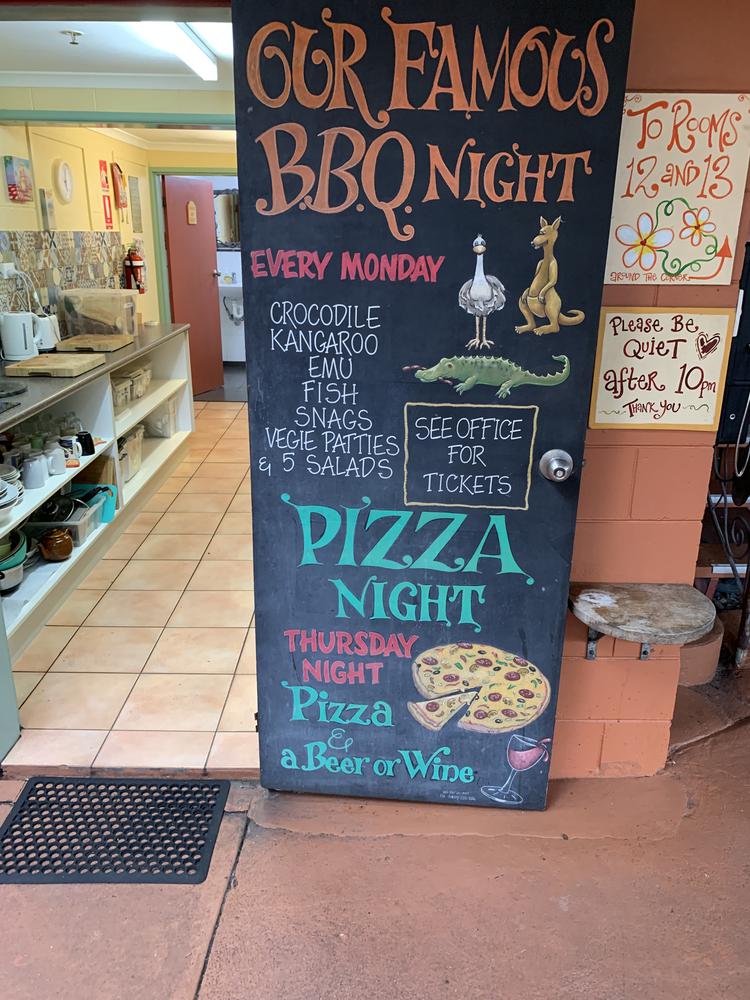 OUR FAMOUS
B.B.Q. NIGHT
EVERY MONDAY
CROCODILE
KANGAROO
EMU
FISH
SNAGS
VEGIE PATTIES
& 5 SALADS
SEE OFFICE
FOR
TICKETS
PIZZA
NIGHT
THURSDAY
NIGHT
Pizza
&
a Beer or Wine
TO ROOMS
12 AND 13
AROUND THE CORNER
PLease Be
QuieT
after 10pm
THANK YOU